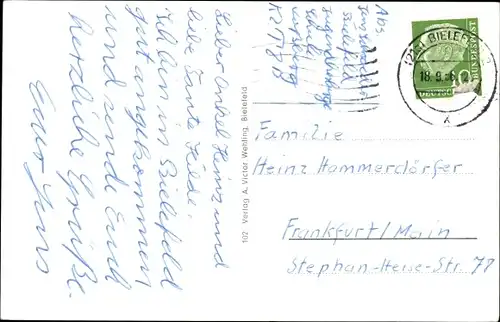 Lieber Onkel Heinz und
liebe Tante Hilde!
Ich bin in Bielefeld
gut angekommen
und sende Euch
herzliche Grüße.
Euer Jens
102 Verlag A. Victor Wehling, Bielefeld
Abs.
Bielefeld
Jugendherberge
(21a) BIELEFELD 2
18.9.
DEUTSCHE
BUNDESPOST
Familie
Heinz Hammerdörfer
Frankfurt/Main
Stephan-Heise-Str. 78